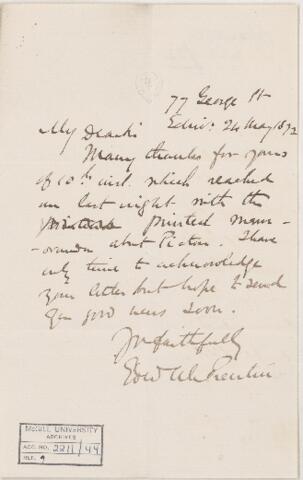 77 George St
Edinr. 24 May 1872
My Dear Sir
Many thanks for yours
of 10th inst. which reached
me last night with the
printed mem-
-oranda about Picton. I have
only time to acknowledge
your letter but hope to send
you good news soon.
Yrs faithfully
McGILL UNIVERSITY
ARCHIVES
ACC. NO. 2211/44
REF. 9